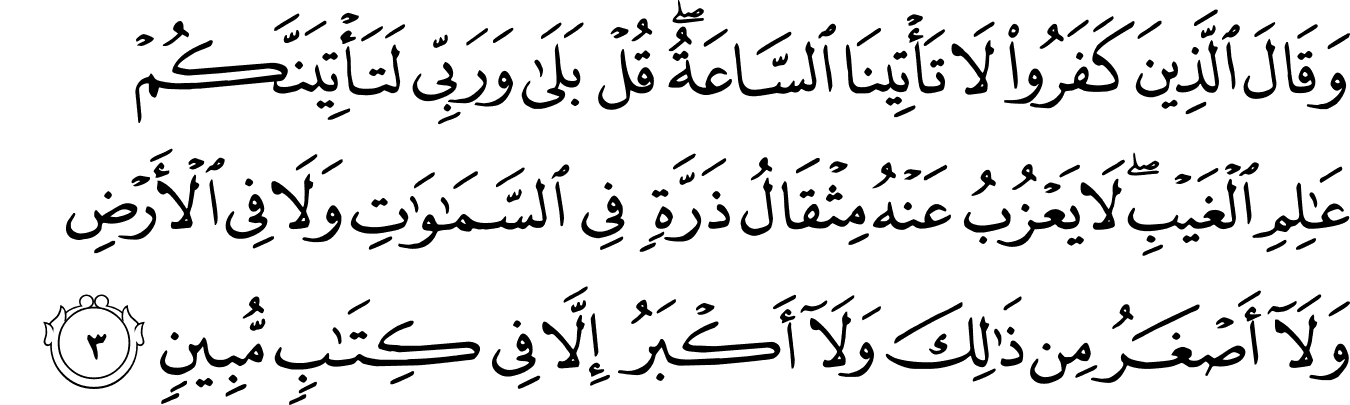 وَقَالَ ٱلَّذِينَ كَفَرُوا۟ لَا تَأْتِينَا ٱلسَّاعَةُ ۖ قُلْ بَلَىٰ وَرَبِّى لَتَأْتِيَنَّكُمْ
عَـٰلِمِ ٱلْغَيْبِ ۖ لَا يَعْزُبُ عَنْهُ مِثْقَالُ ذَرَّةٍ فِى ٱلسَّمَـٰوَٰتِ وَلَا فِى ٱلْأَرْضِ
وَلَآ أَصْغَرُ مِن ذَٰلِكَ وَلَآ أَكْبَرُ إِلَّا فِى كِتَـٰبٍ مُّبِينٍ ٣